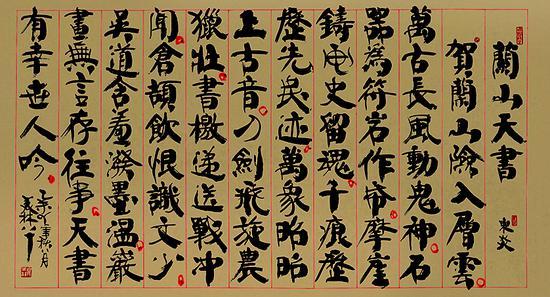 蘭山天書
賀蘭山險入層雲
萬古長風動鬼神石
器為符岩作帋摩崖
鑄史留魂千痕歷
歷先民迹萬象昭昭
上古音刀劍飛旋農
獵壯書檄遞送戰冲
聞倉頡飲恨識文少
吳道含羞潑墨溫巖
畫無言存往事天書
有幸世人吟